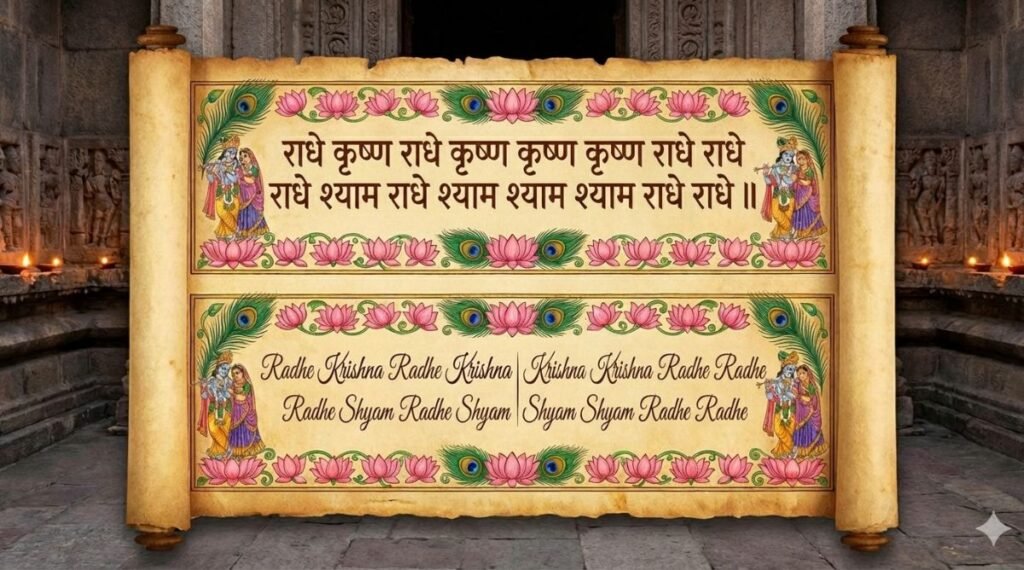 राधे कृष्ण राधे कृष्ण कृष्ण कृष्ण राधे राधे
राधे श्याम राधे श्याम श्याम श्याम राधे राधे ॥
Radhe Krishna Radhe Krishna | Krishna Krishna Radhe Radhe
Radhe Shyam Radhe Shyam | Shyam Shyam Radhe Radhe